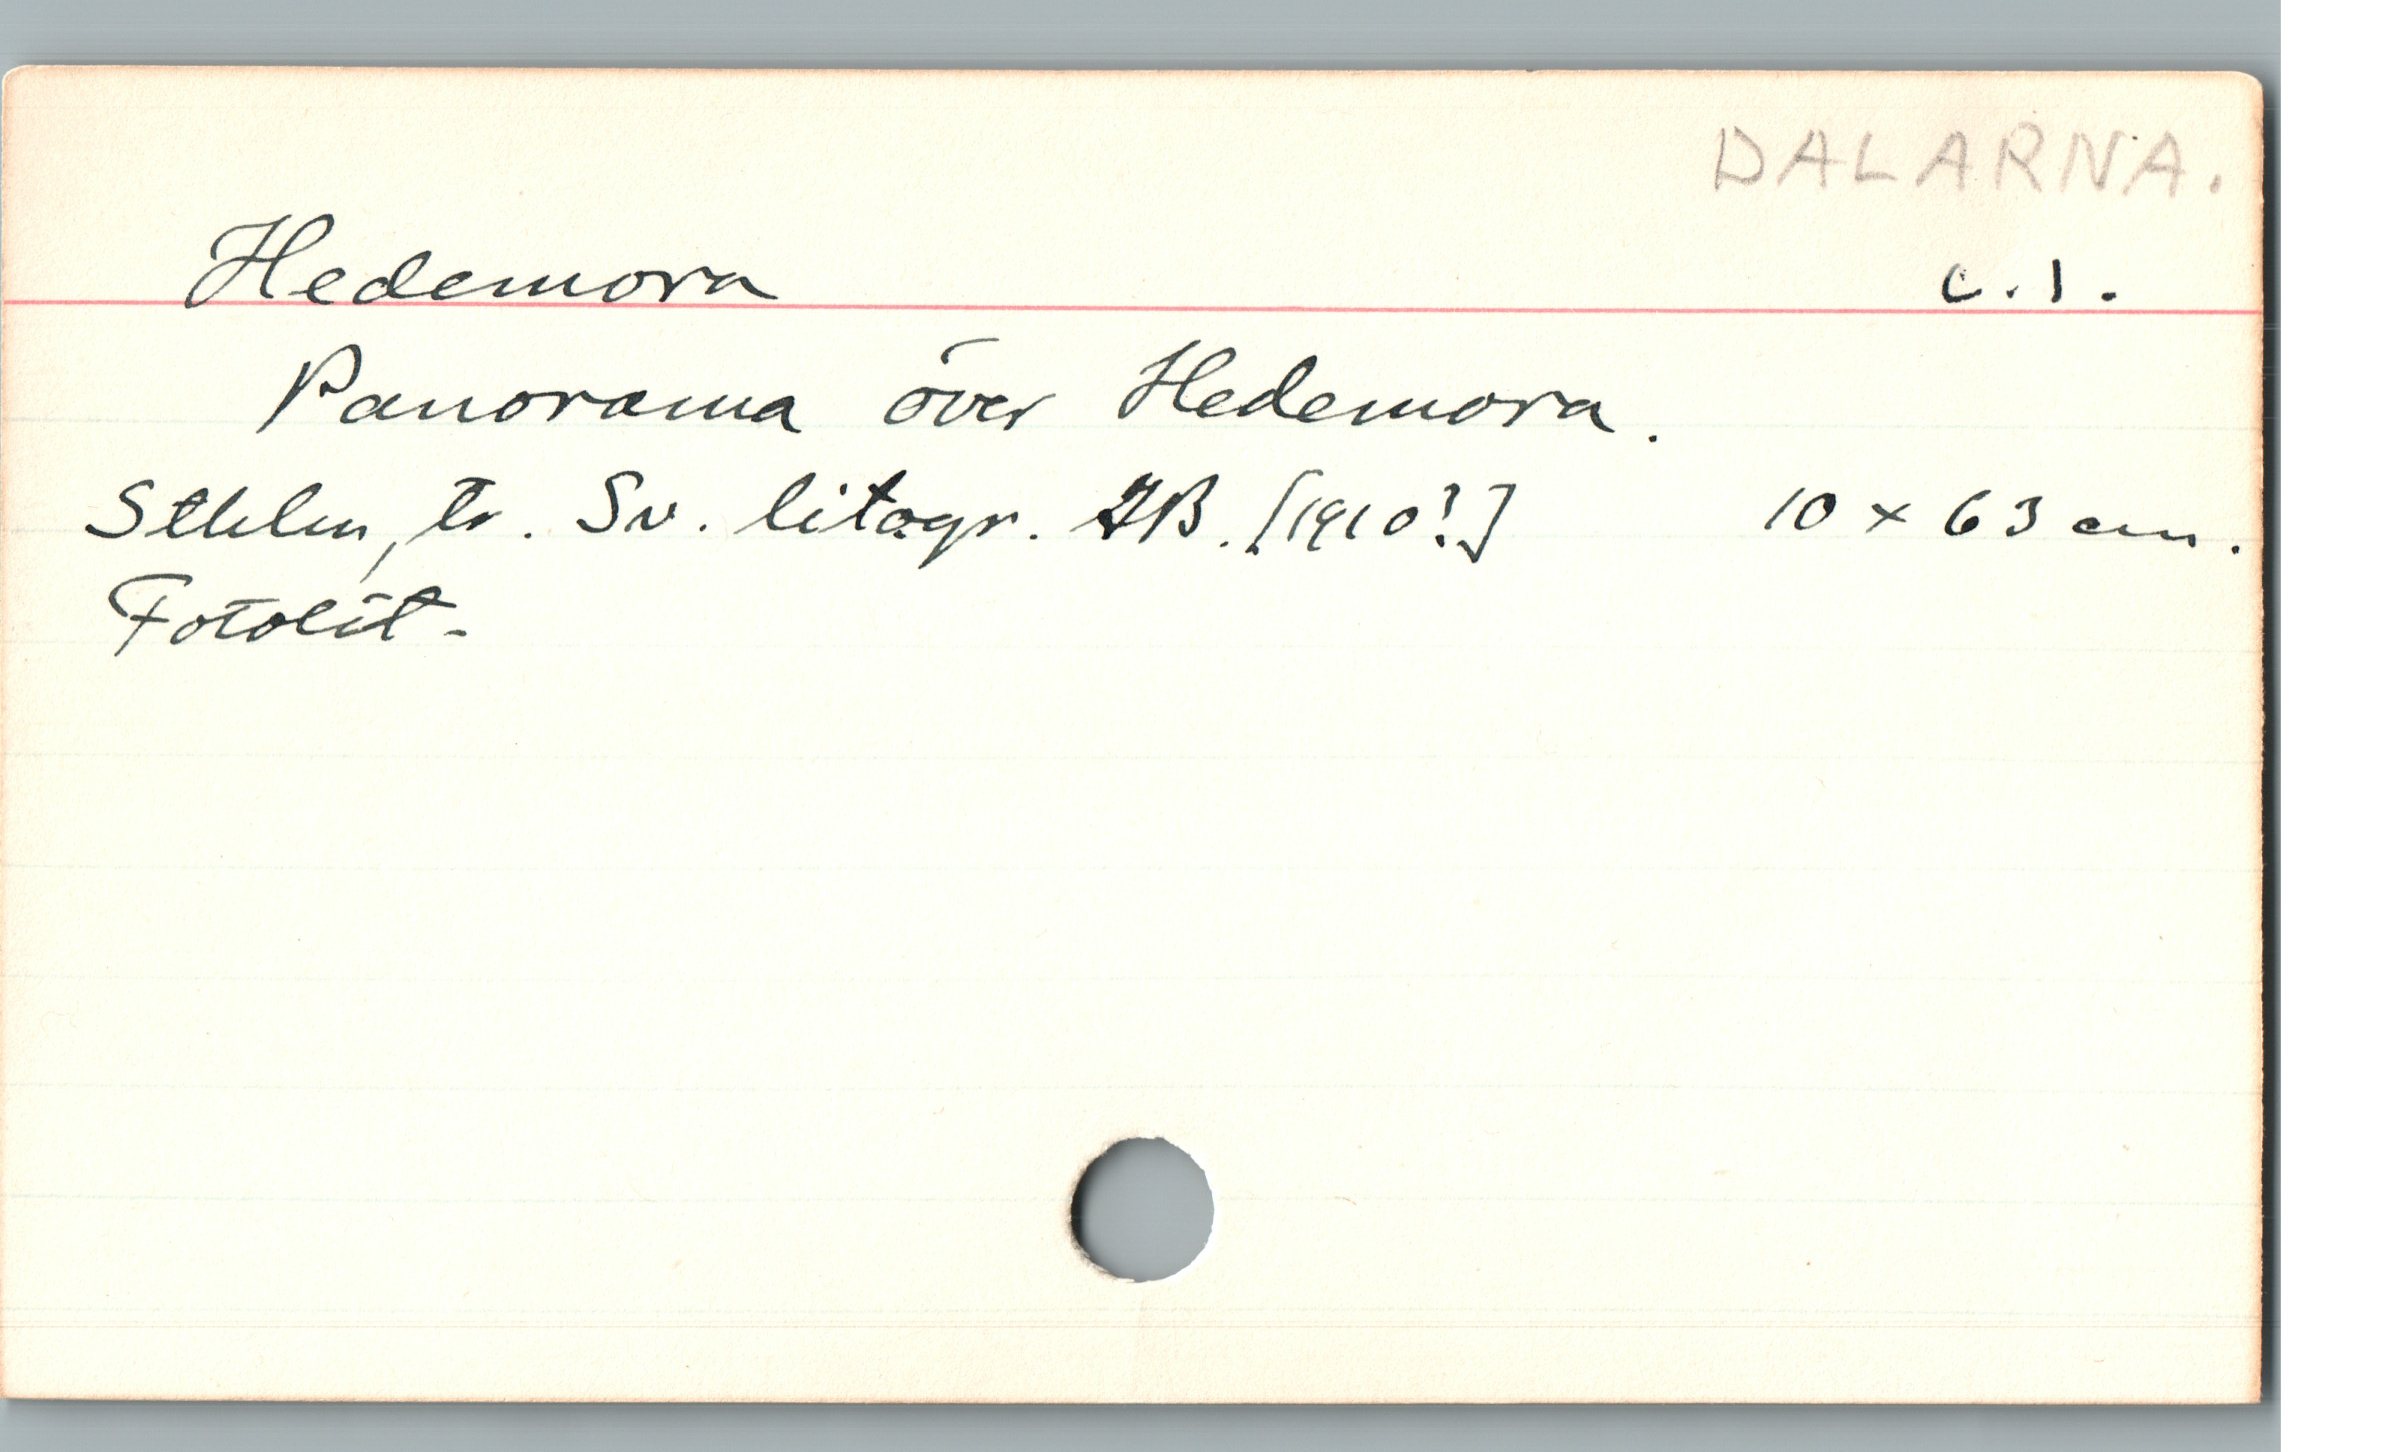 DALARNA.
Hedemora c.1.
Panorama över Hedemora.
Sthlm, tr. Sv. litogr. AB. [1910?] 10 x 63 cm.
Fotolit.